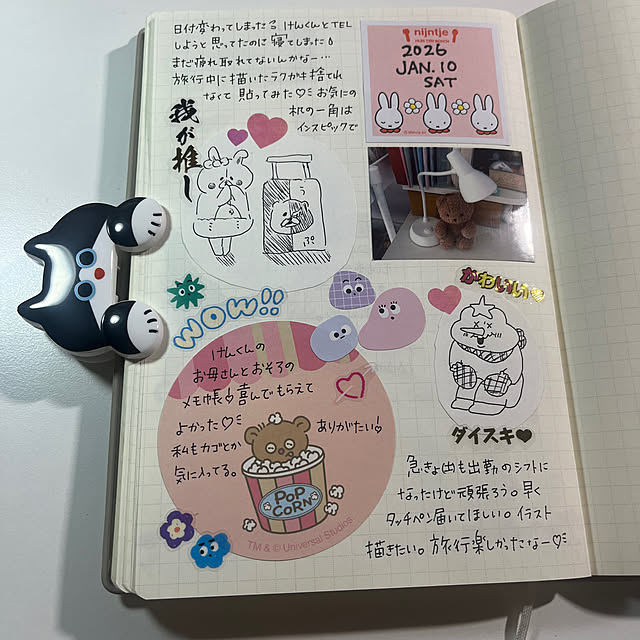 日付変わってしまった💦 けんくんとTEL
しようと思ってたのに寝てしまった
まだ疲れ取れてないんかなー…
旅行中に描いたラクガキ捨てれ
なくて貼ってみた♡ お気にの
机の一角は
インスピックで
我が推し
nijntje
2026
JAN.10
SAT
う
ぷ
かわいい
WOW!!
けんくんの
お母さんとおそろの
メモ帳 喜んでもらえて
よかった♡ ありがたい!
私もカゴとか
気に入ってる。
POP
CORN
TM & © Universal Studios
ダイスキ♥
急きょ明日も出勤のシフトに
なったけど頑張ろう。早く
タッチペン届いてほしい。イラスト
描きたい。旅行楽しかったなー♡